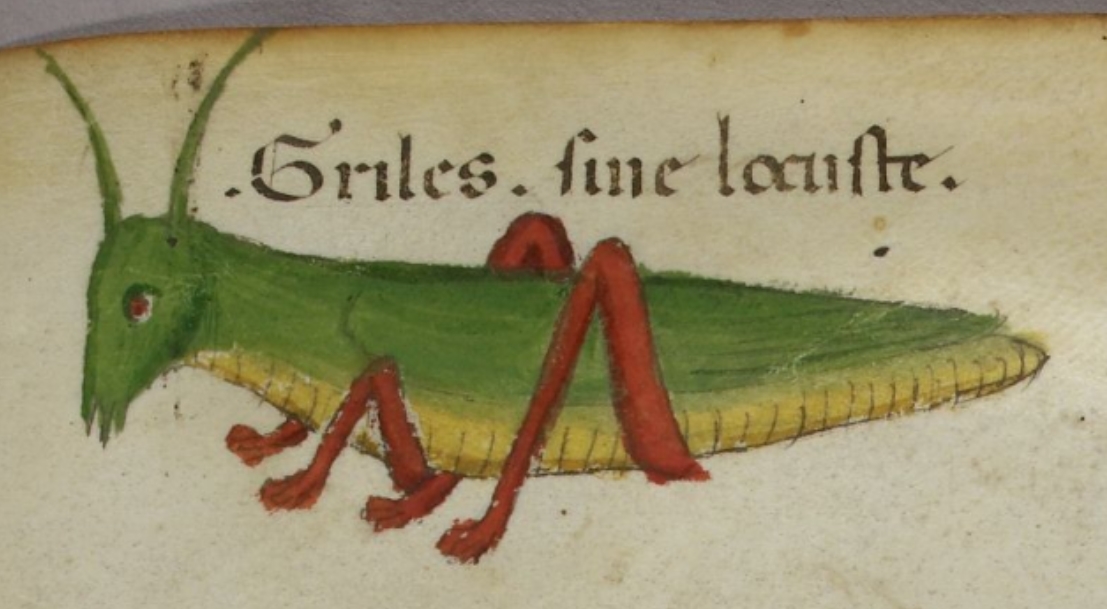 .Griles. siue locuste.